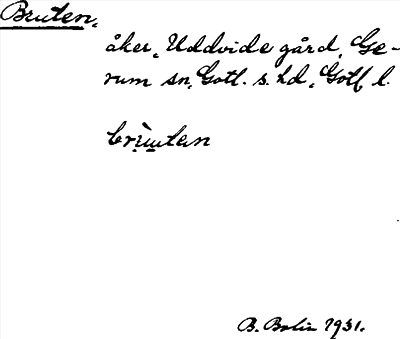 Bruten.
åker, Uddvide gård, Ge-
rum sn, Gotl. s. hd, Gotl. l.
B. Bolin 1931.